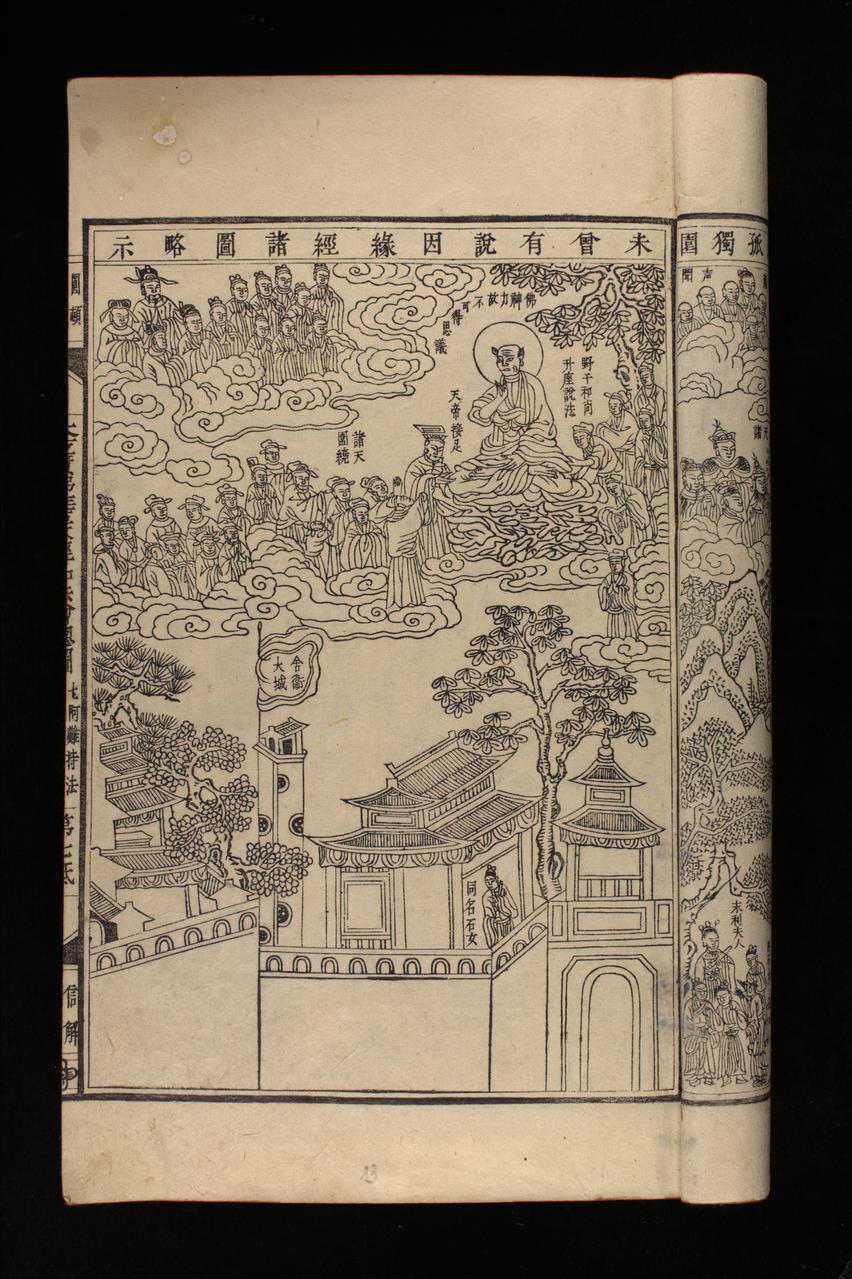 孤獨園
声聞
諸天
末利夫人
未曾有說因緣經諸圖略示
佛神力故不可得思議
野干和尚
升座說法
天帝接足
諸天
圍繞
舍衛
大城
同名石女
圓頓
阿難持法
信解
13